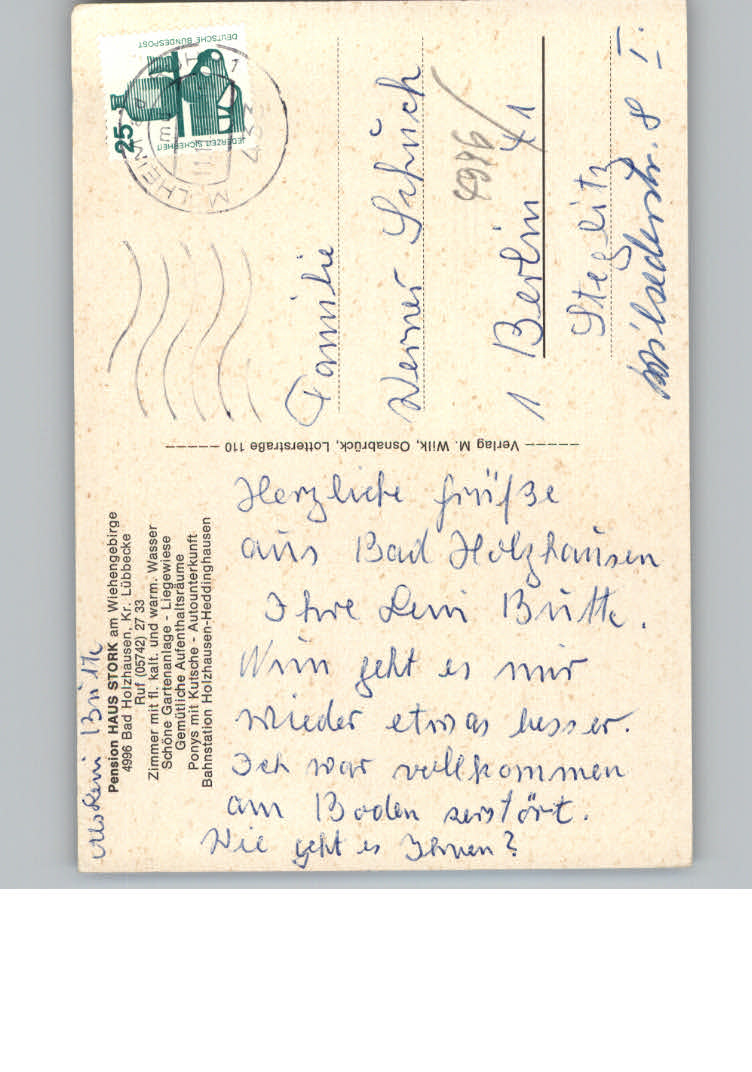 Pension HAUS STORK am Wiehengebirge
4996 Bad Holzhausen, Kr. Lübbecke
Ruf (05742) 27 33
Zimmer mit fl. kalt. und warm. Wasser
Schöne Gartenanlage - Liegewiese
Gemütliche Aufenthaltsräume
Ponys mit Kutsche - Autounterkunft
Bahnstation Holzhausen-Heddinghausen
Herzliche Grüße
aus Bad Holzhausen
Ihre Leni Butte.
Nun geht es mir
wieder etwas besser.
Ich war vollkommen
am Boden zerstört.
Wie geht es Ihnen?
Leni Butte
Verlag M. Wilk, Osnabrück, Lotterstraße 110
DEUTSCHE BUNDESPOST
JEDERZEIT SICHERHEIT
25
433
Familie
Werner Schuch
1 Berlin 41
Steglitz
Wilsederstr. 8 I.